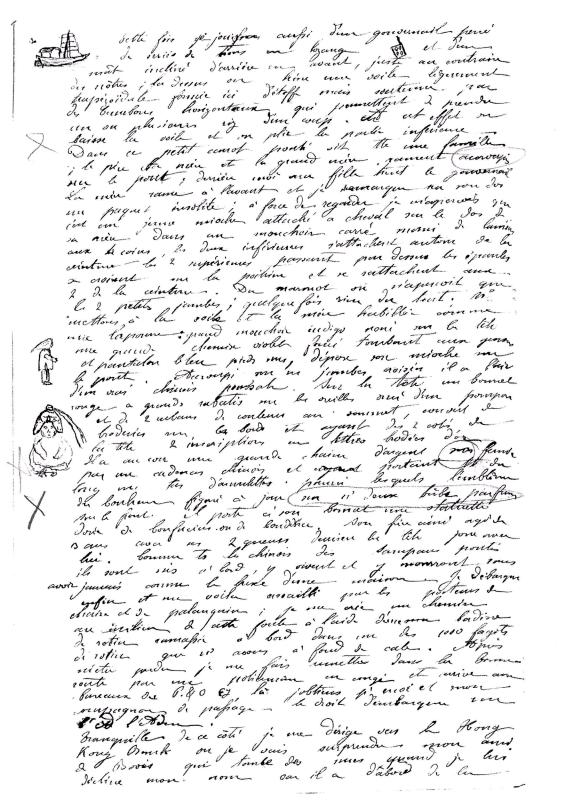 cette fois je jouis aussi d'un gouvernail percé
de séries de trous en losange et d'un
mât incliné d'arrière en avant, juste au contraire
des nôtres ; là dessus on hisse une voile légèrement
trapézoïdale foncée ici d'étoffe mais soutenue par
des bambous horizontaux qui permettent de prendre
un ou plusieurs ris d'un coup. et effet on
baisse la voile et on plie la partie inférieure
Dans ce petit canot ponté vit tte une famille
; le père la mère et la grand mère rament accroupis
sur le pont ; derrière moi une fille tient le gouvernail
La mère rame à l'avant et je remarque sur son dos
un paquet insolite ; à force de regarder je m'aperçois que
c'est un jeune mioche attaché à cheval sur le dos de
sa mère dans un mouchoir carré muni de lanières
aux 4 coins, les deux inférieures s'attachent autour de la
ceinture les 2 supérieures passent par dessus les épaules
se croisent sur la poitrine et se rattachent aux
2 de la ceinture. Du marmot on n'aperçoit que
les 2 petites jambes ; quelquefois rien du tout. Ns
mettons à la voile et la mère habillée comme
une laponne : grand mouchoir indigo noué sur la tête
une grande chemise violet foncé tombant aux genoux
et pantalon bleu pieds nus, dépose son mioche sur
le pont. Accroupi sur ses jambes croisées il a l'air
d'un vrai chinois poussah. Sur la tête un bonnet
rouge à grands rabatis sur les oreilles orné d'un pompon
et de 2 rubans de couleurs au sommet, couvert de
broderies sur les bords et ayant des 2 côtés de
la tête 2 inscriptions en lettres brodées d'or
Il a au cou une grande chaîne d'argent
par un cadenas chinois et portant
tas d'amulettes parmi lesquels l'emblème
du bonheur figuré à jour
sur le front. il porte à son bonnet une statuette
dorée de Confucius ou de bouddha. Son frère aîné âgé de
3 ans avec ses 2 queues derrière la tête joue avec
lui. Comme ts les chinois des sampans pontés
ils sont nés à bord, y vivent et y mourront sans
avoir jamais connu la fixité d'une maison. Je débarque
enfin et me voilà assailli par les porteurs de
chaise et de palanquin ; je me crée un chemin
au milieu de cette foule à l'aide d'un bâton
de rotin ramassé à bord dans un des 1000 fagots
de rotin que ns avons à fond de cale. Après
m'être perdu je me fais remettre dans la bonne
route par un policeman en congé et arrive aux
bureaux des P. & O Cy, là j'obtiens pr moi et mon
compagnon de passage le droit d'embarquer sur
l'Aden.
Tranquille de ce côté je me dirige vers la Hong
Kong Bank où je vais surprendre mon ami
de Bovis qui tombe des nues quand je lui
décline mon nom car il a d'abord de la